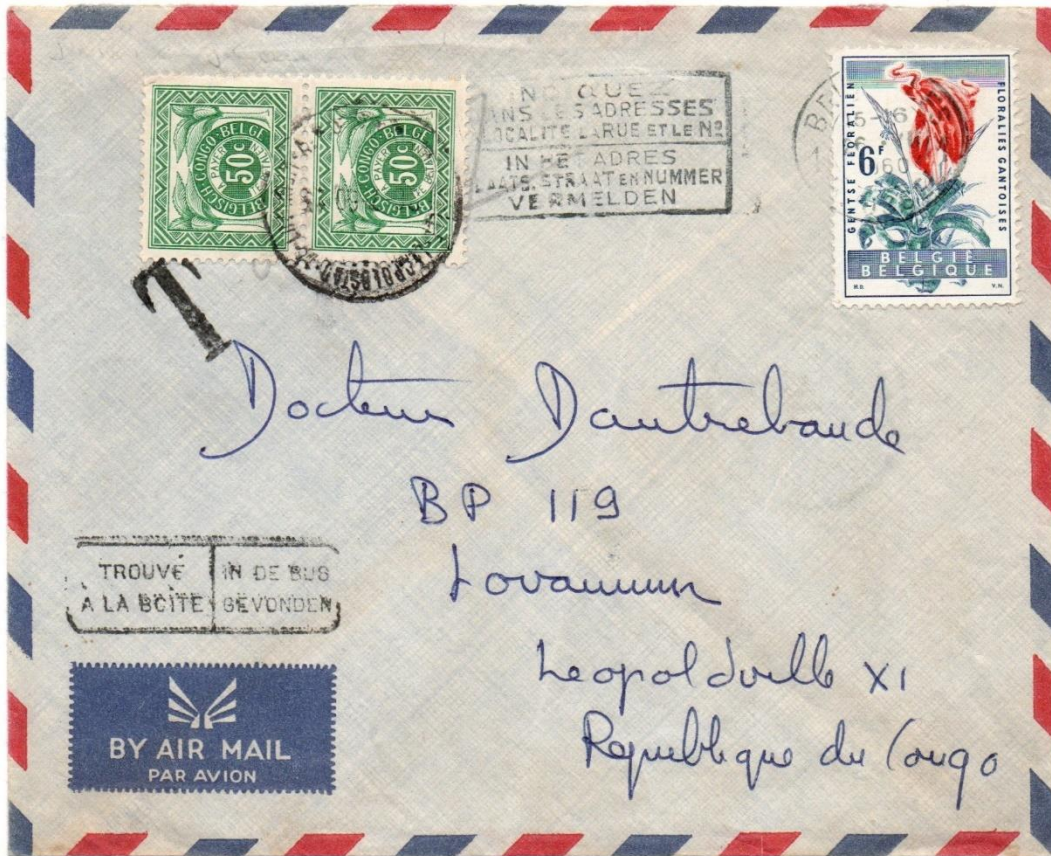 BELGISCH CONGO BELGE
50c
A PAYER
BELGISCH CONGO BELGE
50c
A PAYER
LES ADRESSES
LOCALITE LA RUE ET LE Nº
IN HET ADRES
STRAAT EN NUMMER
VERMELDEN
60
GENTSE FLORALIËN
FLORALIES GANTOISES
6F
BELGIË
BELGIQUE
T
Docteur Dautrebande
BP 119
Lovanium
Leopoldville XI
Republique du Congo
TROUVE
A LA BOITE
IN DE BUS
GEVONDEN
BY AIR MAIL
PAR AVION